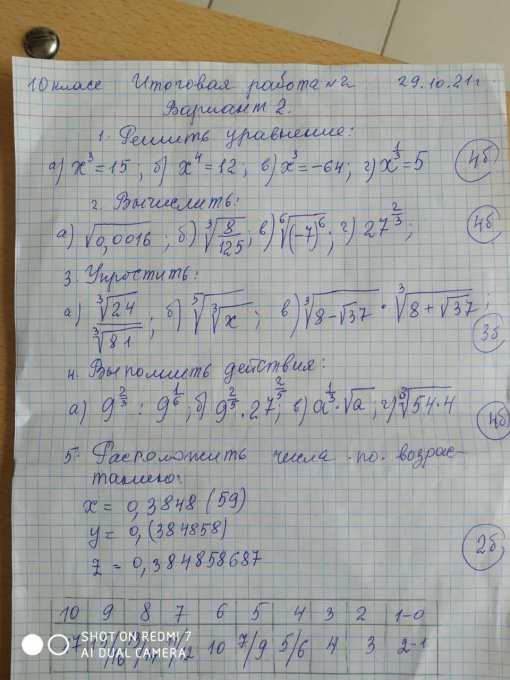 10 класс Итоговая работа №2 29.10.21г
Вариант 2.
1. Решить уравнение:
а) x³ = 15; б) x⁴ = 12; в) x³ = -64; г) x^{1/3} = 5 4б
2. Вычислить:
а) √0,0016; б) ∛(8/125); в) ⁶√(-7)⁶; г) 27^{2/3}; 4б
3. Упростить:
а) ∛24/∛81; б) ⁵√∛x; в) ∛(8-√37) · ∛(8+√37); 3б
4. Выполнить действия:
а) 9^{2/3} : 9^{1/6}; б) 9^{2/5} · 27^{2/5}; в) a^{1/3} · √a; г) ∛(54·4) 4б
5. Расположить числа по возрас-
танию:
x = 0,3848(59)
y = 0,(384858)
z = 0,384858687 2б
10 9 8 7 6 5 4 3 2 1-0
17 10 7/9 5/6 4 3 2-1
SHOT ON REDMI 7
AI DUAL CAMERA